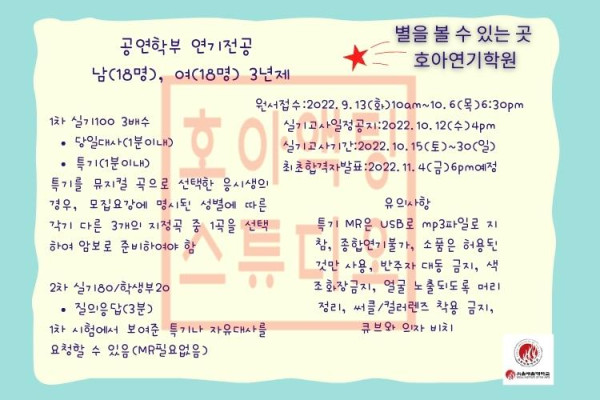 공연학부 연기전공
남(18명), 여(18명) 3년제
별을 볼 수 있는 곳
호아연기학원
원서접수:2022. 9. 13(화)10am~10. 6(목)6:30pm
실기고사일정공지:2022. 10. 12(수)4pm
실기고사기간:2022. 10. 15(토)~30(일)
최초합격자발표:2022. 11. 4(금)6pm예정
1차 실기100 3배수
• 당일대사(1분이내)
• 특기(1분이내)
특기를 뮤지컬 곡으로 선택한 응시생의
경우, 모집요강에 명시된 성별에 따른
각기 다른 3개의 지정곡 중 1곡을 선택
하여 암보로 준비하여야 함
2차 실기80/학생부20
• 질의응답(3분)
1차 시험에서 보여준 특기나 자유대사를
요청할 수 있음(MR필요없음)
유의사항
특기 MR은 USB로 mp3파일로 지
참, 종합연기불가, 소품은 허용된
것만 사용, 반주자 대동 금지, 색
조화장금지, 얼굴 노출되도록 머리
정리, 써클/컬러렌즈 착용 금지,
큐브와 의자 비치
호아액팅
스튜디오
서울예술대학교